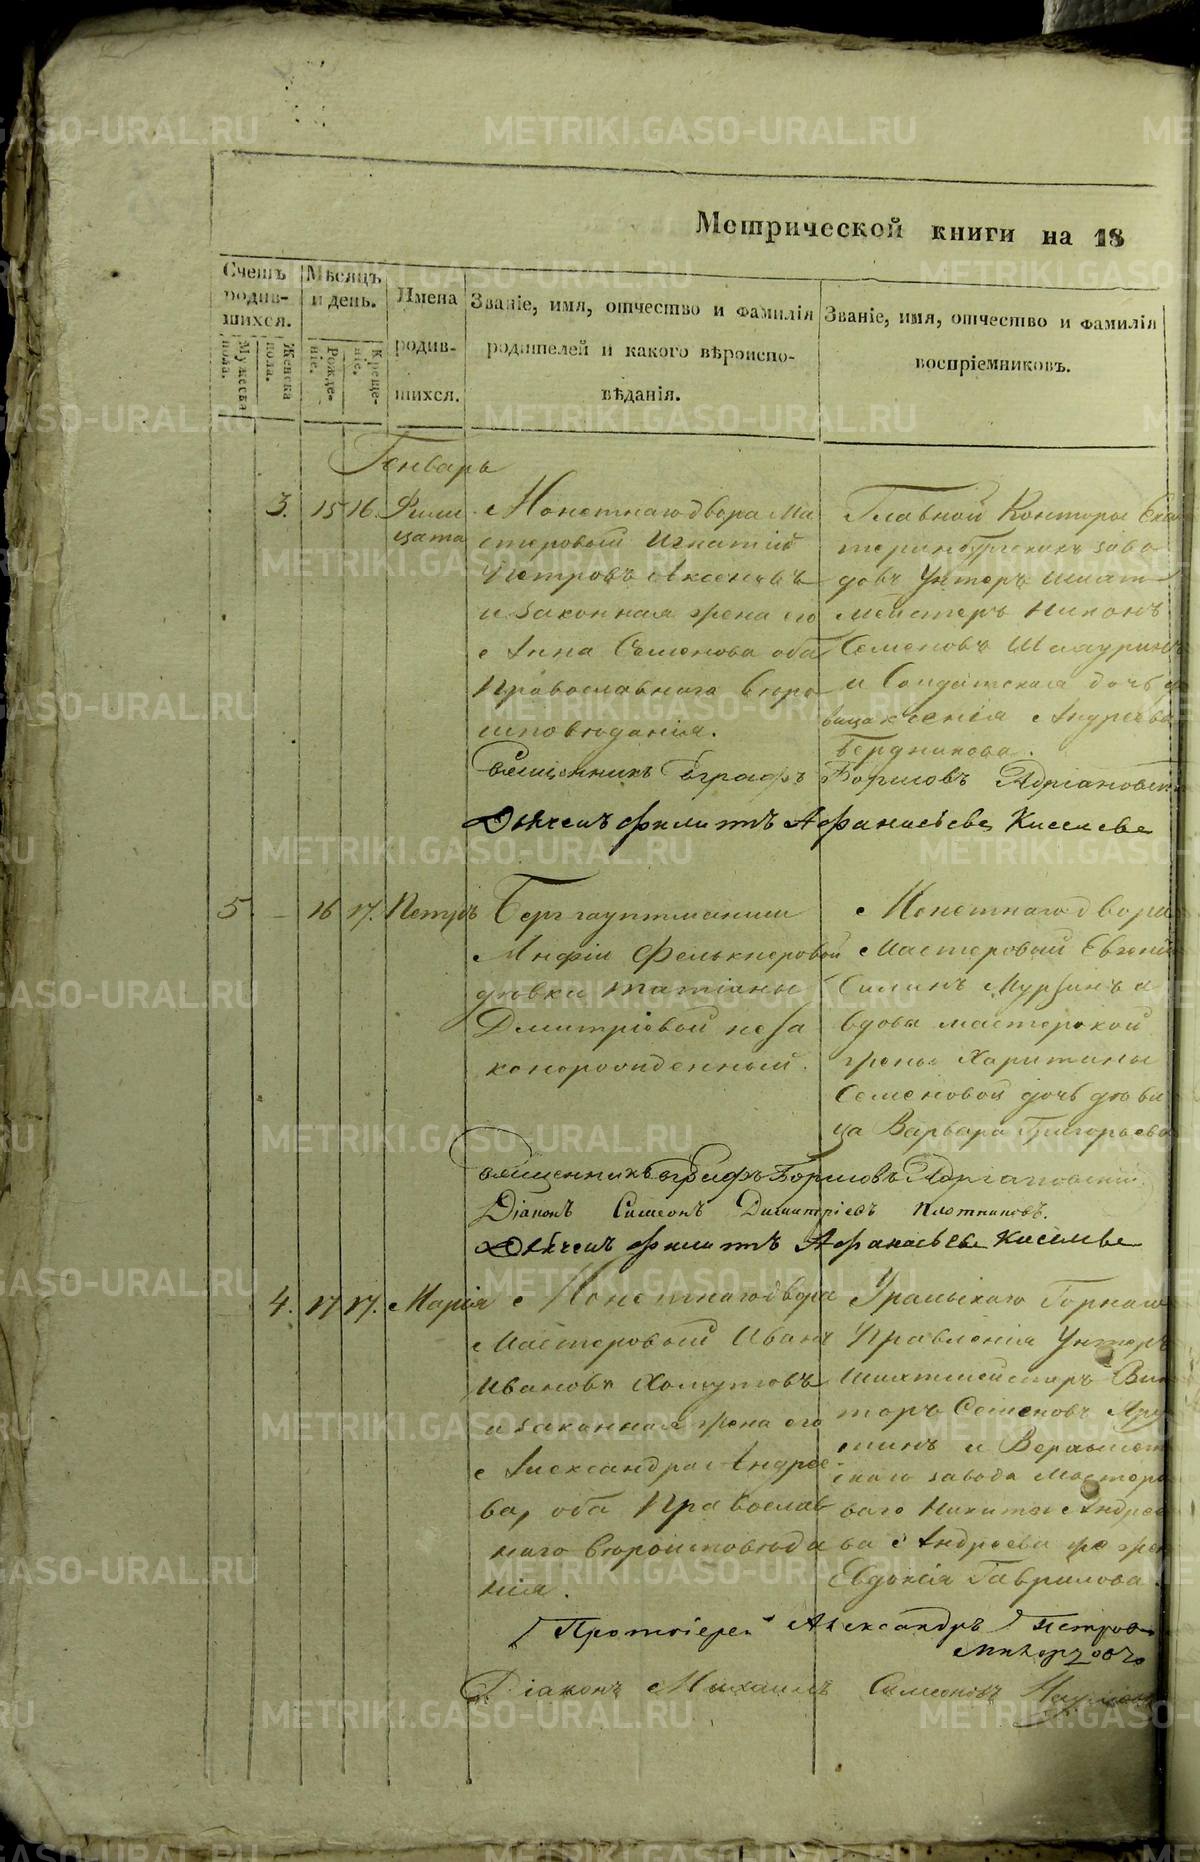 Метрической книги на 18
Счетъ родив-шихся.
Мужеска пола.
Женска пола.
Мѣсяцъ и день.
Рожде-ніе.
Креще-ніе.
Имена родив-шихся.
Званіе, имя, отчество и фамилія
родителей и какого вѣроиспо-
вѣданія.
Званіе, имя, отчество и фамилія
воспріемниковъ.
Генварь
3. 15 16. Фили
цата
Монетнаго двора Ма
стеровый Игнатій
Петровъ Аксеновъ
и законная жена его
Анна Семенова оба
Православнаго вѣро
исповѣданія.
Главной Конторы Ека
теринбургскихъ заво
довъ Унтеръ Шихт
мейстеръ Никонъ
Семеновъ
и Солдатская дочь дѣ
вица Ксенія Андреева
Бердникова.
Священникъ Евграфъ Борисовъ Адріановскій
Дьячекъ Филиппъ Афанасьевъ Киселевъ
5. – 16 17. Петръ
Бергауптманши
Мифіи Фелькнеровой
дѣвки Татіаны
Дмитріевой неза
конорожденный.
Монетнаго двора
Мастеровый Евгеній
Силинъ Мурзинъ и
вдовы мастерской
жены Харитины
Семеновой дочь дѣви
ца Варвара Григорьева
Священникъ Евграфъ Борисовъ Адріановскій
Діаконъ Симеонъ Димитріевъ Плотниковъ.
Дьячекъ Филиппъ Афанасьевъ Киселевъ
4. 17 17. Марія
Монетнаго двора
Мастеровый Иванъ
Ивановъ Хомутовъ
и законная жена его
Александра Андрее
ва, оба Православ
наго вѣроисповѣда
нія.
Уральскаго Горнаго
Правленія Унтеръ
Шихтмейстеръ Вик
торъ Семеновъ
и Верхъисет
скаго завода Мастеро
ваго Никиты Андрее
ва Андреева жена
Евдокія Гаврилова.
Протоіерей Александръ Петровъ
Діаконъ Михаилъ Симеоновъ
METRIKI.GASO-URAL.RU